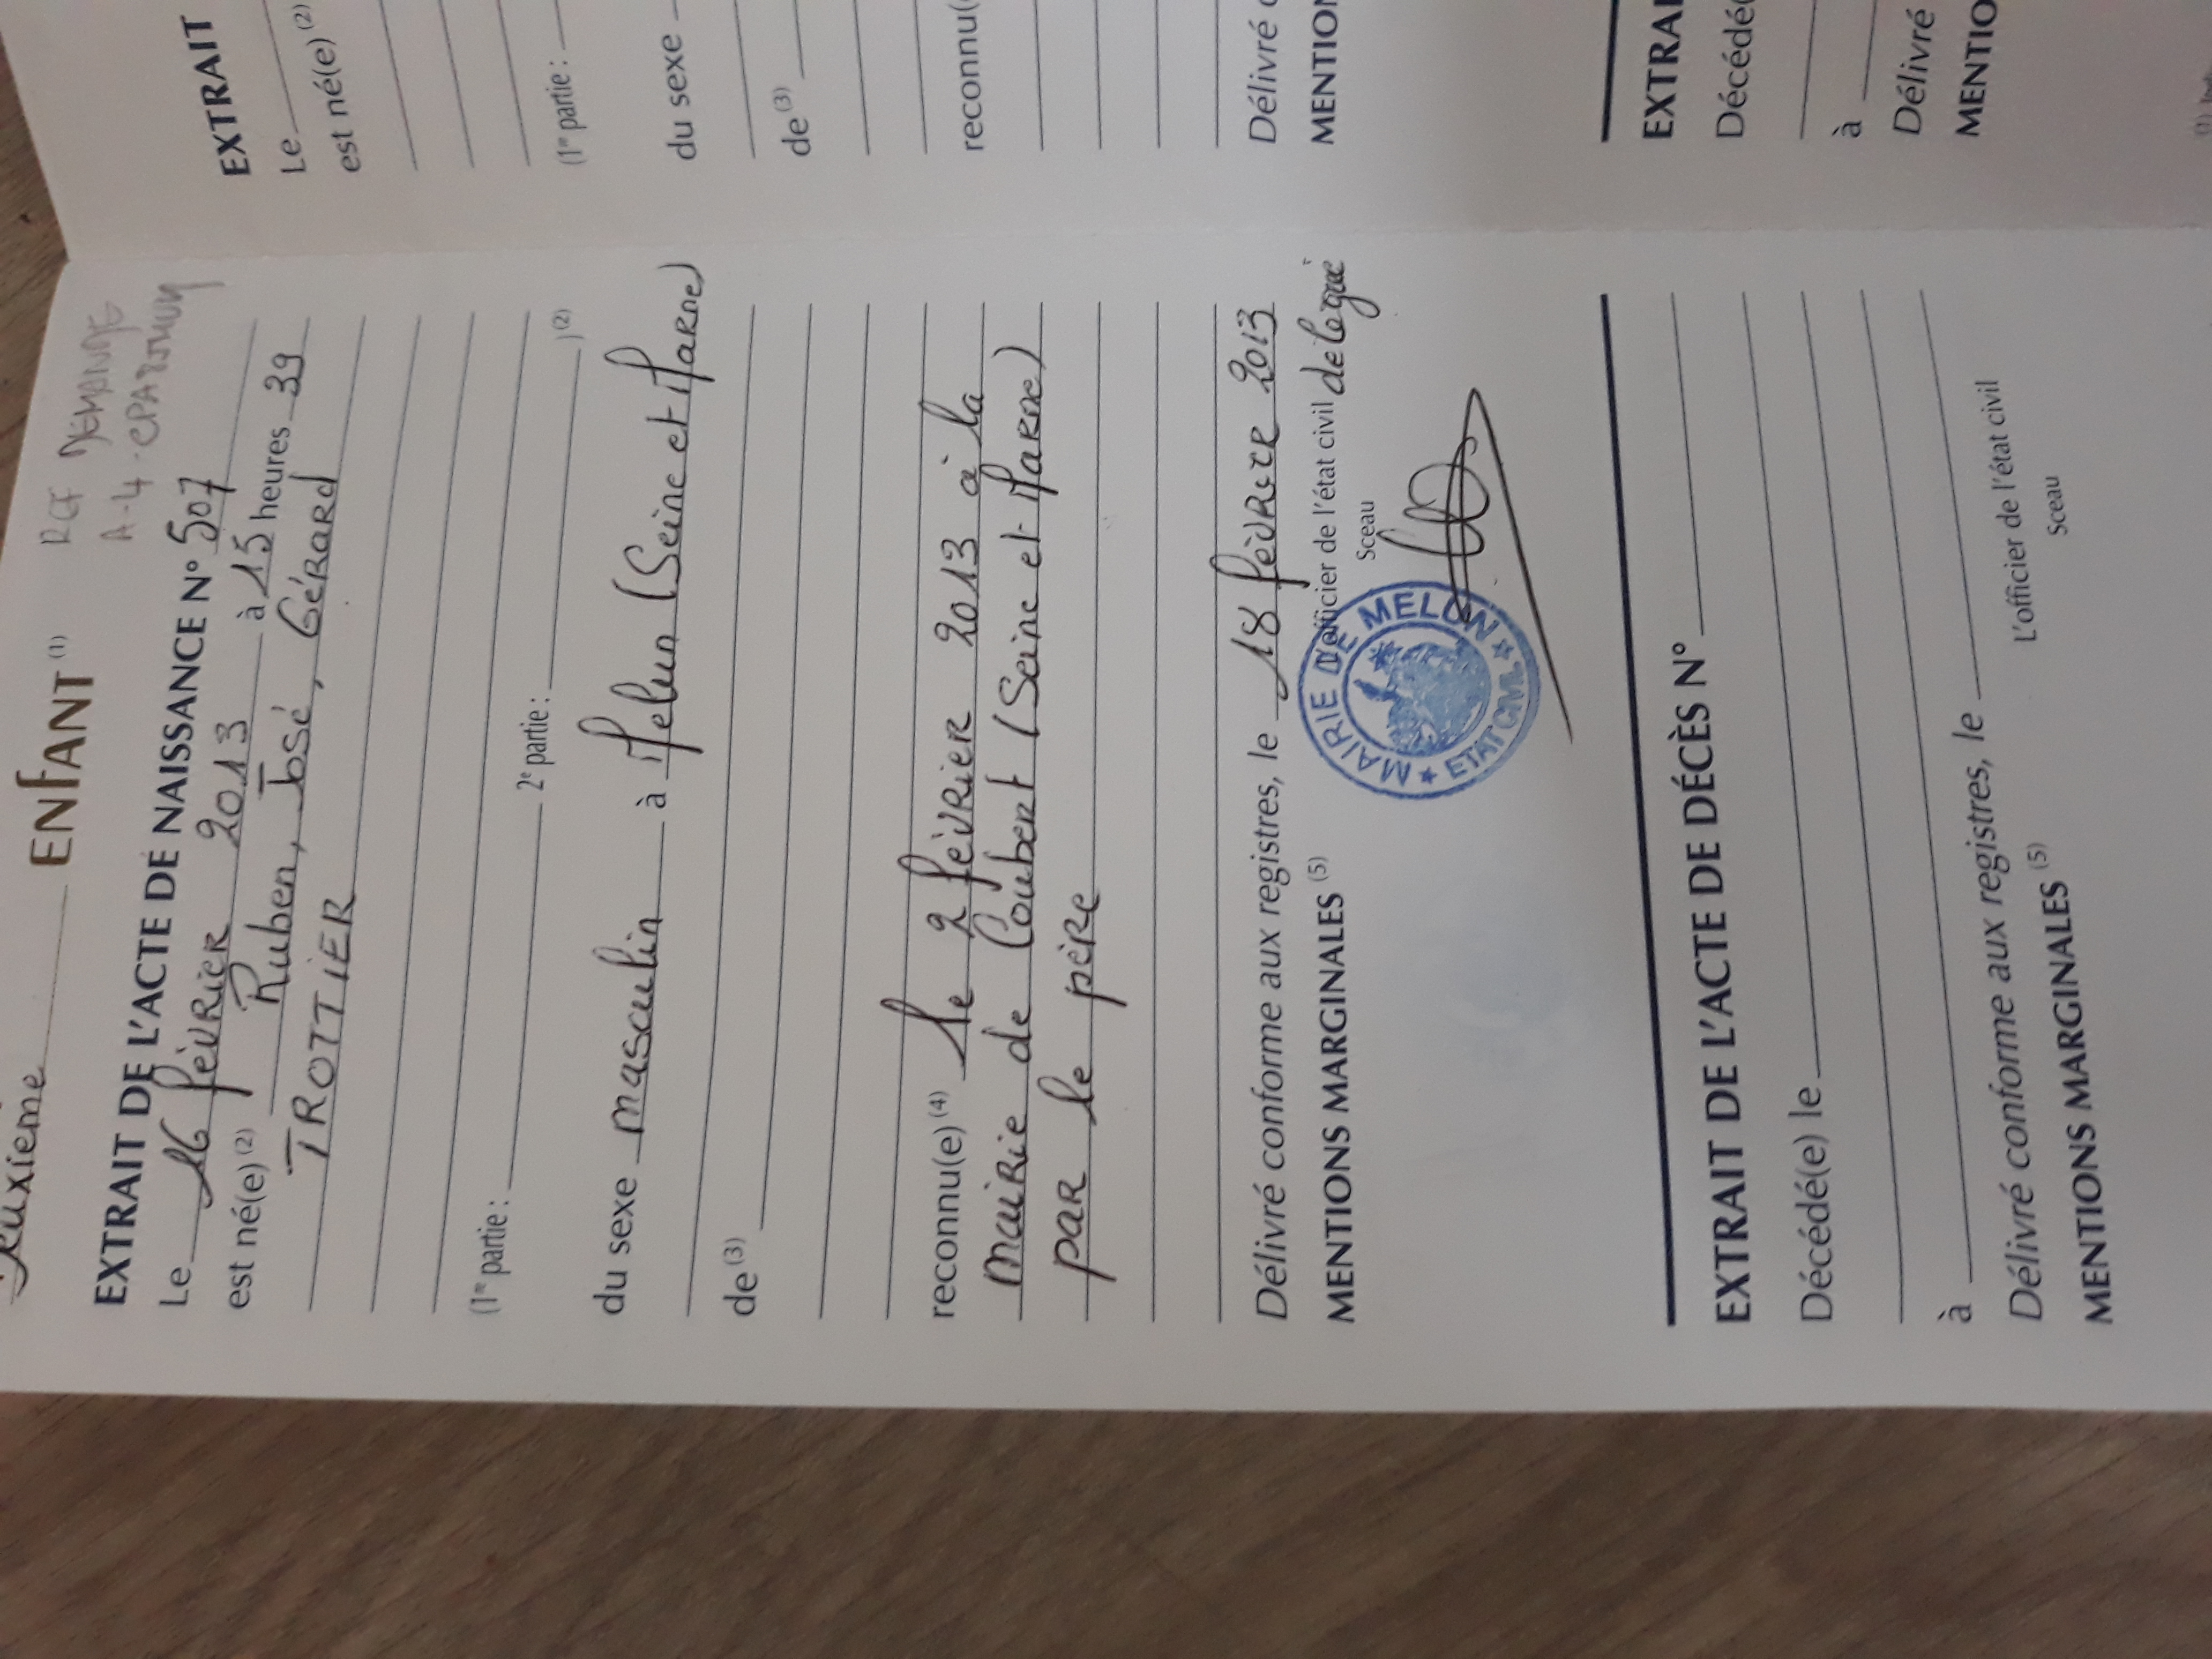 Deuxième ENFANT (1)
REF DEMANDE
A-4
EXTRAIT DE L'ACTE DE NAISSANCE N° 507
Le 16 février 2013 à 15 heures 39
est né(e) (2) Ruben, José, Gérard
TROTTIER
(1re partie : 2e partie : ) (2)
du sexe masculin à Melun (Seine et Marne)
de (3)
reconnu(e) (4) le 2 février 2013 à la
mairie de Coubert (Seine et Marne)
par le père
Délivré conforme aux registres, le 18 février 2013
L'officier de l'état civil délégué
Sceau
MENTIONS MARGINALES (5)
MAIRIE DE MELUN
ETAT CIVIL
EXTRAIT DE L'ACTE DE DÉCÈS N°
Décédé(e) le
à
Délivré conforme aux registres, le
L'officier de l'état civil
Sceau
MENTIONS MARGINALES (5)
EXTRAIT
Le
est né(e) (2)
(1re partie :
du sexe
de (3)
reconnu(
Délivré c
MENTION
EXTRAI
Décédé(
à
Délivré
MENTIO